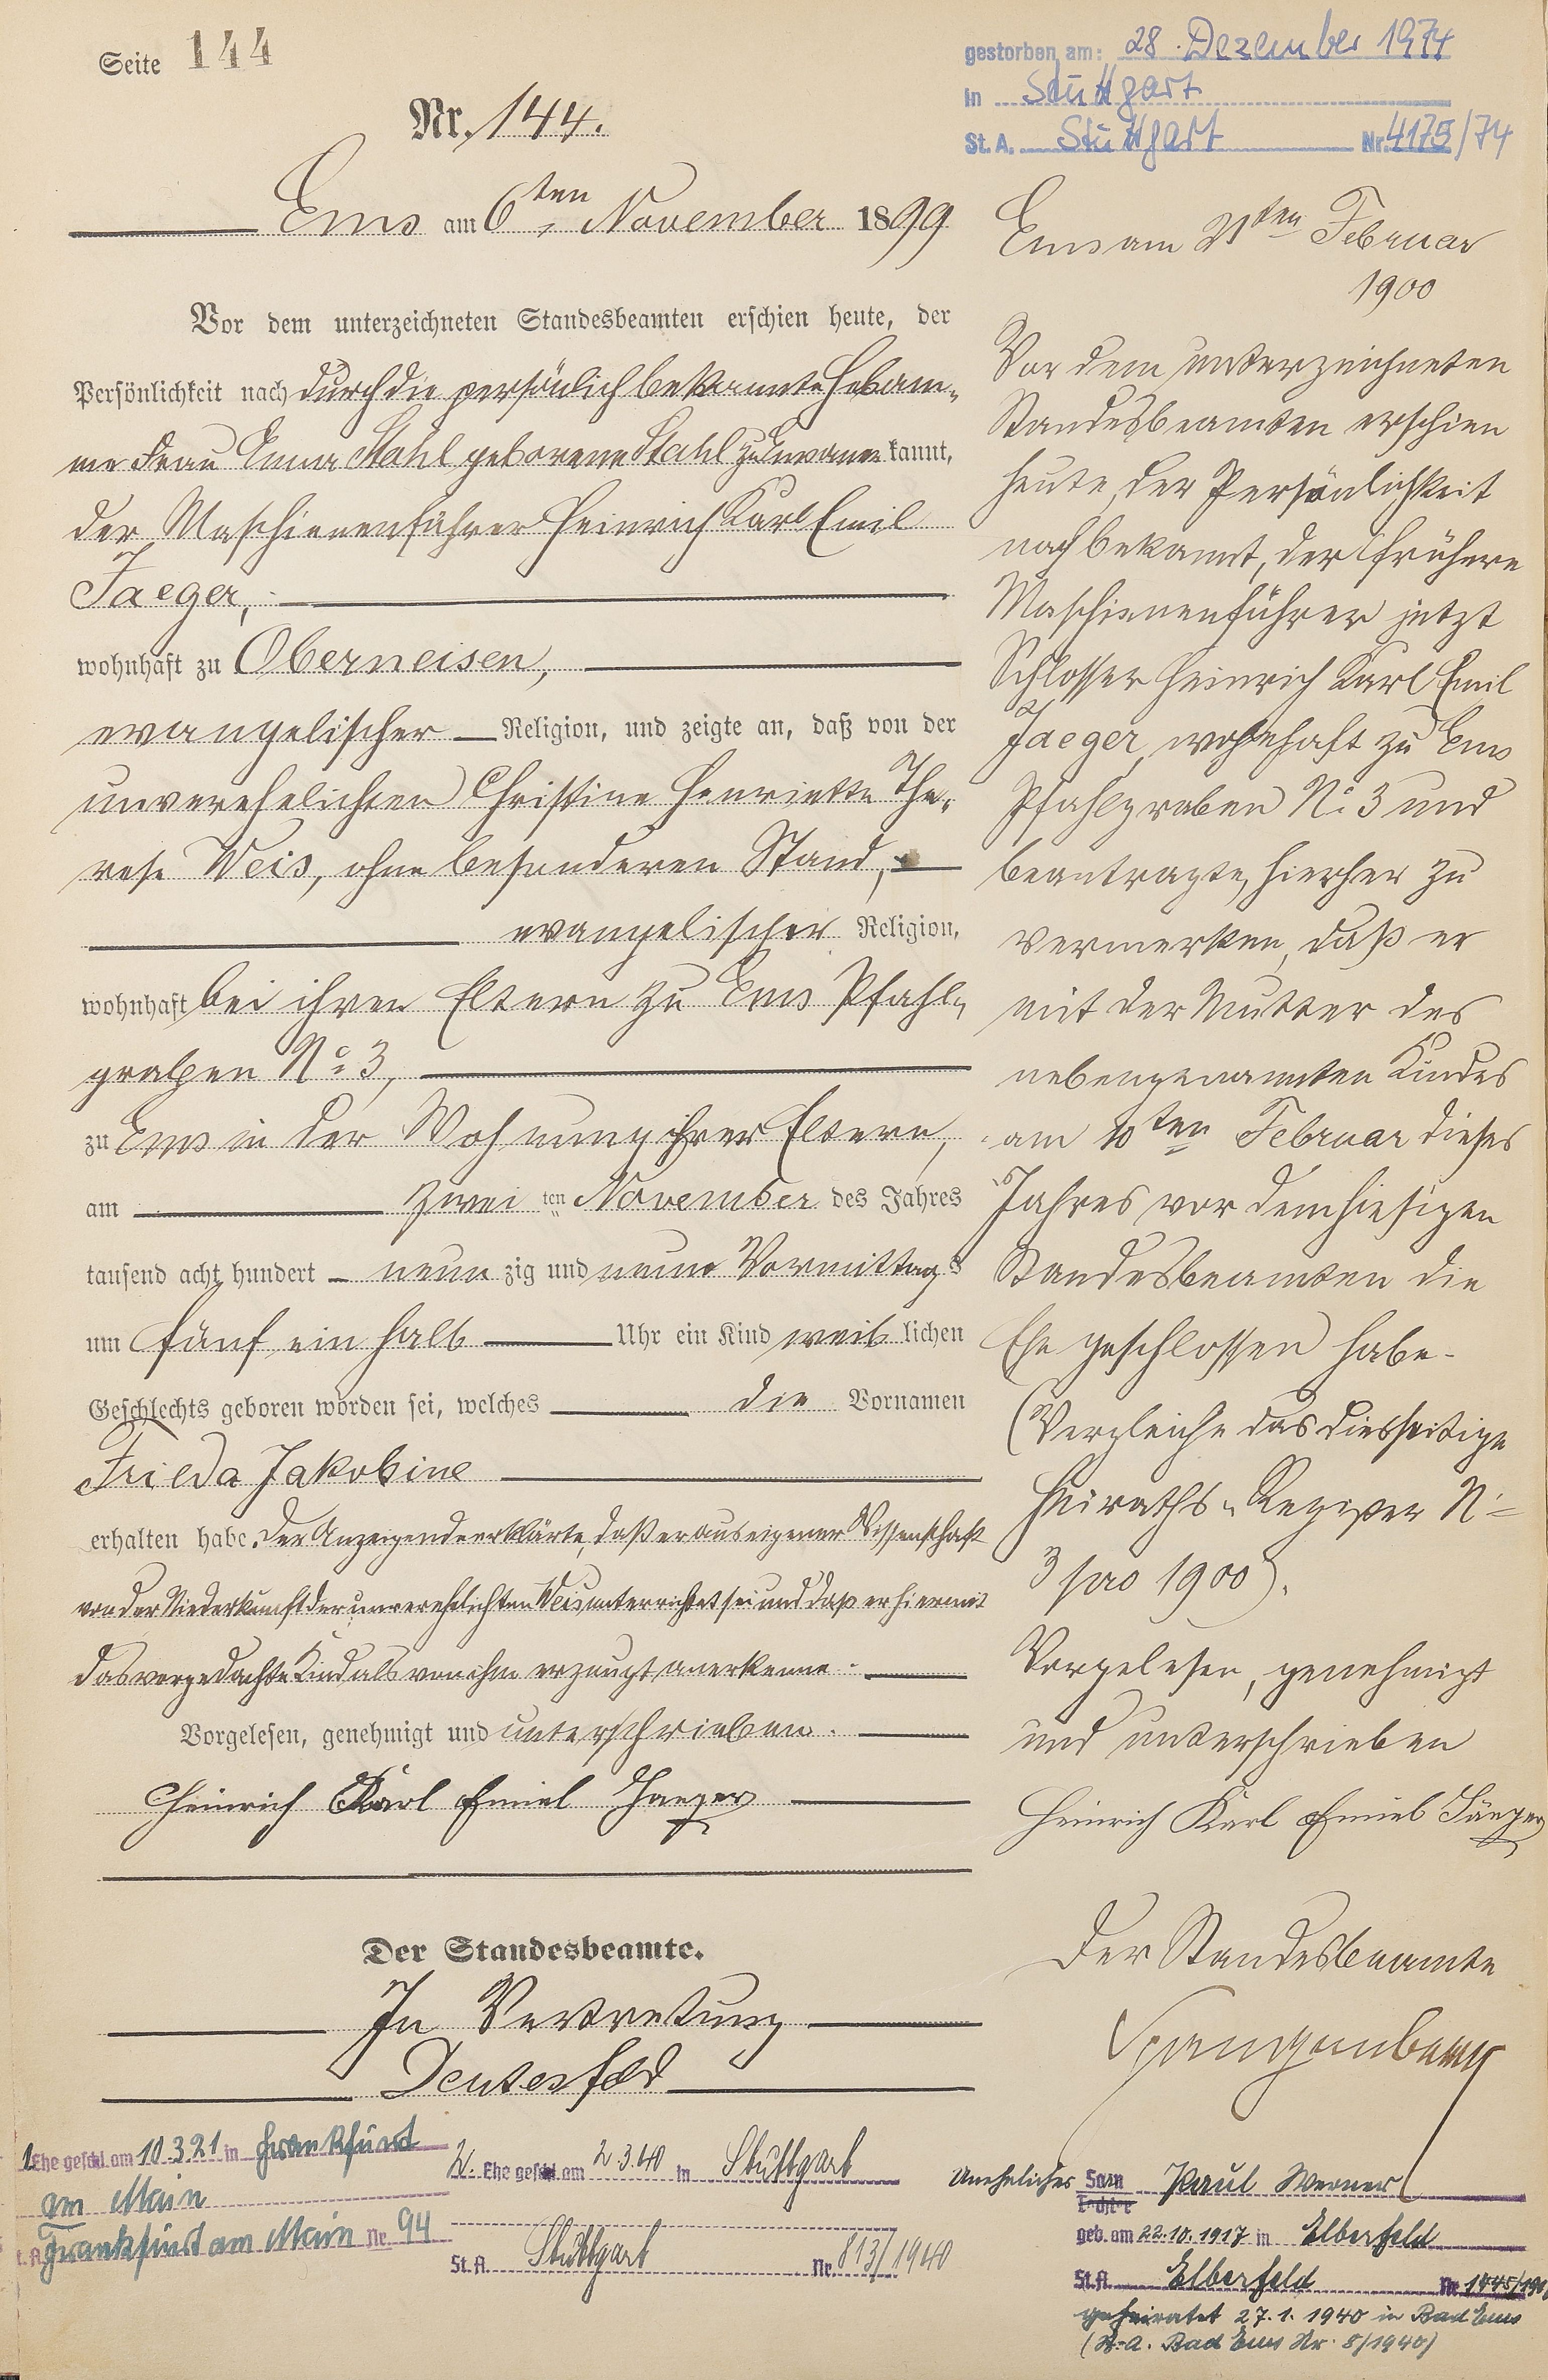 Seite 144
Nr. 144.
Ems am 6ten November 1899
Vor dem unterzeichneten Standesbeamten erschien heute, der
Persönlichkeit nach durch die persönlich bekannte Hebam-
me Frau Anna Stahl geborene Stahl zu Ems aner kannt,
der Maschienenführer Heinrich Karl Emil
Jaeger,
wohnhaft zu Oberneisen,
evangelischer Religion, und zeigte an, daß von der
unverehelichten Christine Henriette The-
rese Weis, ohne besonderen Stand,
evangelischer Religion,
wohnhaft bei ihren Eltern zu Ems Pfahl-
graben No 3,
zu Ems in der Wohnung ihrer Eltern,
am zwei ten November des Jahres
tausend acht hundert neun zig und neun Vormittags
um fünf ein halb Uhr ein Kind weib lichen
Geschlechts geboren worden sei, welches die Vornamen
Frieda Jakobine
erhalten habe. Der Anzeigende erklärte, daß er aus eigener Wissenschaft
von der Niederkunft der unverehelichten Weis unterrichtet sei und daß er hiermit
das vorgedachte Kind als von ihm erzeugt anerkenne.
Vorgelesen, genehmigt und unterschrieben.
Heinrich Karl Emiel Jaeger
Der Standesbeamte.
In Vertretung
Deutesfeld
1. Ehe geschl. am 10.3.21 in Frankfurt
am Main
St. A. Frankfurt am Main Nr. 94
2. Ehe geschl. am 2.3.40 in Stuttgart
St. A. Stuttgart Nr. 813/1940
gestorben am: 28. Dezember 1974
in Stuttgart
St. A. Stuttgart Nr. 4175/74
Ems am 21ten Februar
1900
Vor dem unterzeichneten
Standesbeamten erschien
heute, der Persönlichkeit
nach bekannt, der frühere
Maschienenführer jetzt
Schlosser Heinrich Karl Emil
Jaeger, wohnhaft zu Ems
Pfahlgraben No 3 und
beantragte, hierher zu
vermerken, daß er
mit der Mutter des
nebengenannten Kindes
am 10ten Februar dieses
Jahres vor dem hiesigen
Standesbeamten die
Ehe geschlossen habe.
(Vergleiche das diesseitige
Heiraths-Register No
3 pro 1900).
Vorgelesen, genehmigt
und unterschrieben
Heinrich Karl Emiel Jäeger
Der Standesbeamte
Spangenberg
Uneheliches Sohn Paul Werner
Tochter
geb. am 22.10.1917 in Elberfeld
St. A. Elberfeld Nr.
geheiratet 27.1.1940 in Bad Ems
(St.A. Bad Ems Nr. 8/1940)